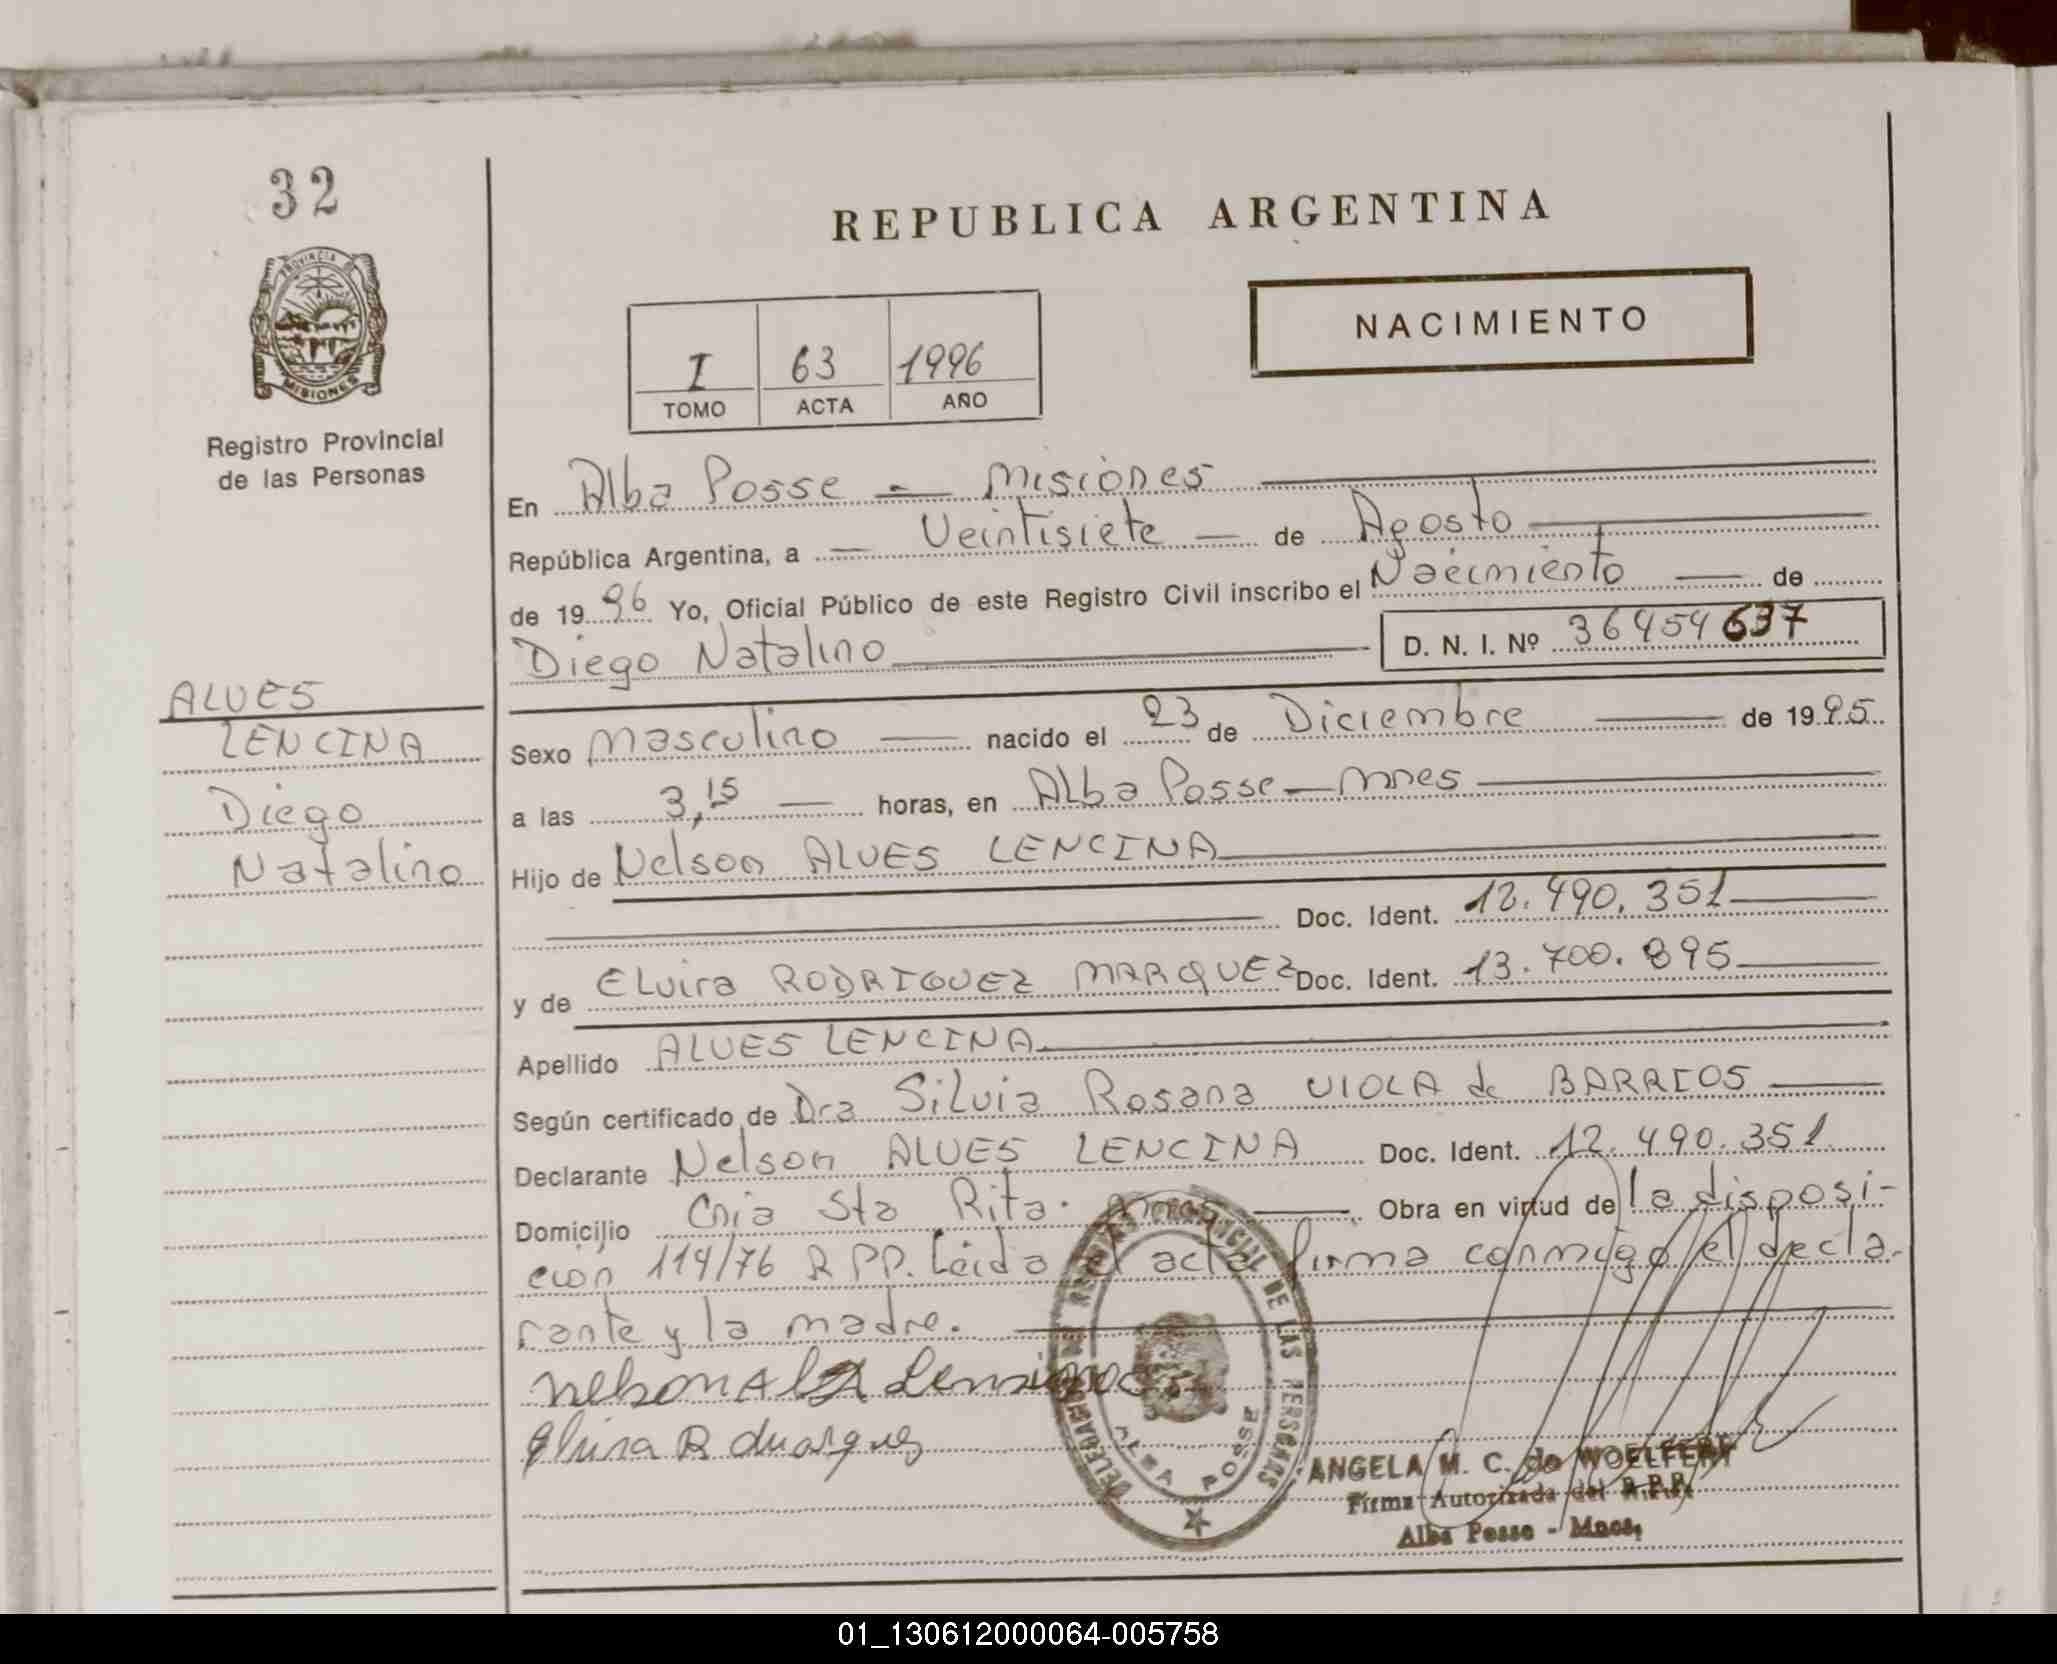 32
REPUBLICA ARGENTINA
PROVINCIA DE
MISIONES
Registro Provincial
de las Personas
NACIMIENTO
I 63 1996
TOMO ACTA AÑO
En Alba Posse - Misiones
República Argentina, a - Veintisiete - de Agosto
de 1996 Yo, Oficial Público de este Registro Civil inscribo el Nacimiento - de
Diego Natalino D. N. I. Nº 36454637
ALVES
LENCINA
Diego
Natalino
Sexo Masculino - nacido el 23 de Diciembre - de 1995
a las 3,15 - horas, en Alba Posse - Mnes
Hijo de Nelson ALVES LENCINA
Doc. Ident. 12.490.351
y de Elvira RODRIGUEZ MARQUEZ Doc. Ident. 13.700.895
Apellido ALVES LENCINA
Según certificado de Dra Silvia Rosana VIOLA de BARRIOS
Declarante Nelson ALVES LENCINA Doc. Ident. 12.490.351
Domicilio Cnia Sta Rita. Obra en virtud de la disposi-
cion 114/76 R.P.P. Leida el acta firma conmigo el decla-
rante y la madre.
DE LAS PERSONAS
ALBA POSSE
ANGELA M. C. de WOELFERT
Firma Autorizada del R.P.P.
Alba Posse - Mnes.
01_130612000064-005758